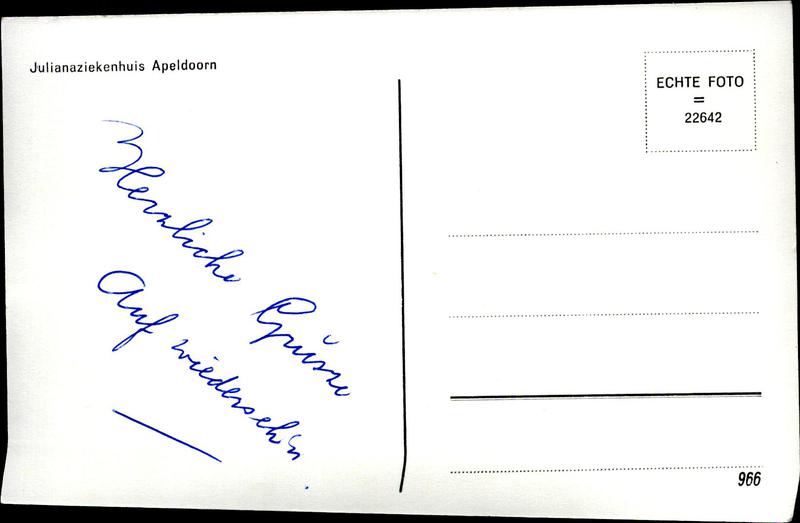 Julianaziekenhuis Apeldoorn
ECHTE FOTO
=
22642
Herzliche Grüsse
Auf wiederseh'n
966